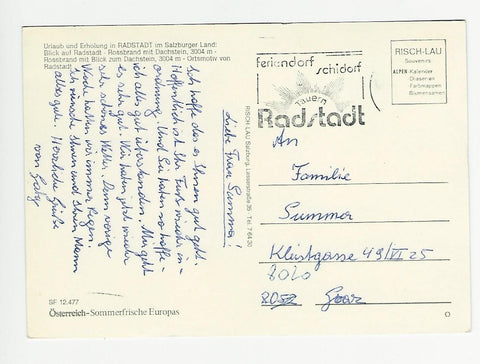 Urlaub und Erholung in RADSTADT im Salzburger Land:
Blick auf Radstadt - Rossbrand mit Dachstein, 3004 m -
Rossbrand mit Blick zum Dachstein, 3004 m - Ortsmotiv von
Radstadt
Liebe Frau Summer!
Ich hoffe das es Ihnen gut geht.
Hoffentlich ist Ihr Fuß wieder in
ordnung. Und Sie haben so hoffe
ich alles gut überstanden. Mir geht
es sehr gut. Wir haben jetzt wieder
sehr schönes Wetter. Denn vorige
Woche hatten wir immer Regen.
Ich wünsche Ihnen und Ihren Mann
alles gute. Herzliche Grüße
von Gaby
SF 12.477
Österreich-Sommerfrische Europas
RISCH-LAU Salzburg, Lasserstraße 35 - Tel. 7 64 30
feriendorf
schidorf
Tauern
Radstadt
RISCH-LAU
Souvenirs
ALPEN-Kalender
Glaserien
Farbmappen
Blumenkarten
An
Familie
Summer
Kleistgasse 49/VI 25
8020
Graz